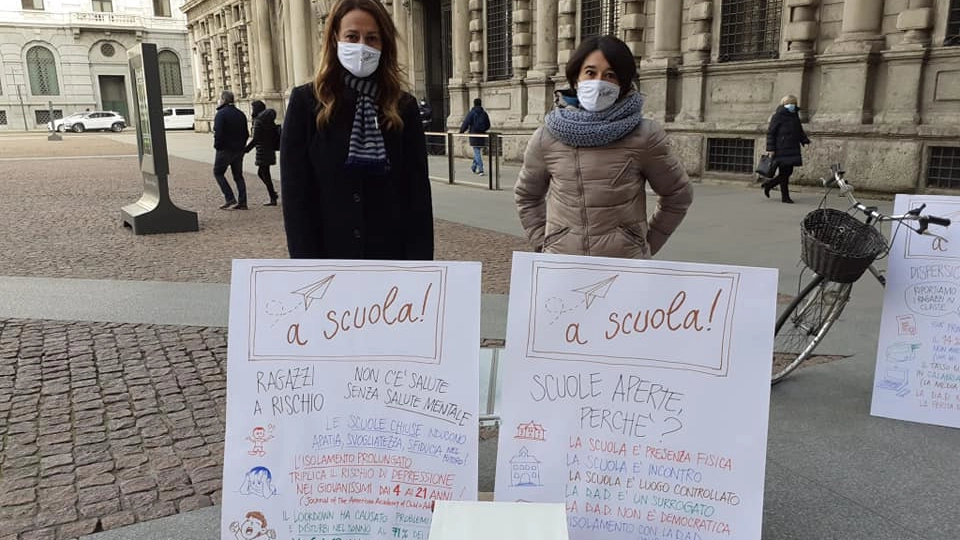 a scuola!
RAGAZZI
A RISCHIO
NON C'È SALUTE
SENZA SALUTE MENTALE
LE SCUOLE CHIUSE INDUCONO
APATIA, SVOGLIATEZZA, SFIDUCIA NEL
FUTURO!
L'ISOLAMENTO PROLUNGATO
TRIPLICA IL RISCHIO DI DEPRESSIONE
NEI GIOVANISSIMI DAI 4 AI 21 ANNI!
(Journal of The American Academy of Child
IL LOCKDOWN HA CAUSATO PROBLEMI
E DISTURBI NEL SONNO AL 71% DEI
a scuola!
SCUOLE APERTE,
PERCHE'?
LA SCUOLA E' PRESENZA FISICA
LA SCUOLA E' INCONTRO
LA SCUOLA E' LUOGO CONTROLLATO
LA D.A.D. E' UN SURROGATO
LA D.A.D. NON E' DEMOCRATICA
ISOLAMENTO CON LA D.A.D.
a
DISPERSIO
RIPORTIAMO
I RAGAZZI IN
CLASSE
IL 14%
NON
IL TASSO
IN CALABRIA
(LA MEDIA
LA D.A.D.